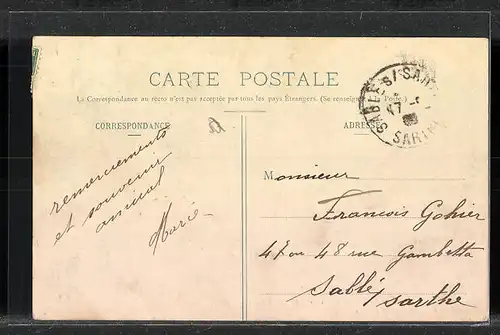 CARTE POSTALE
La Correspondance au recto n'est pas acceptée par tous les pays Étrangers. (Se renseigner à la Poste.)
CORRESPONDANCE
ADRESSE
SABLÉ S/ SARTHE
17
SARTHE
remerciements
et souvenir
amical
Marie
Monsieur
Francois Gohier
47 ou 48 rue Gambetta
Sablé
Sarthe